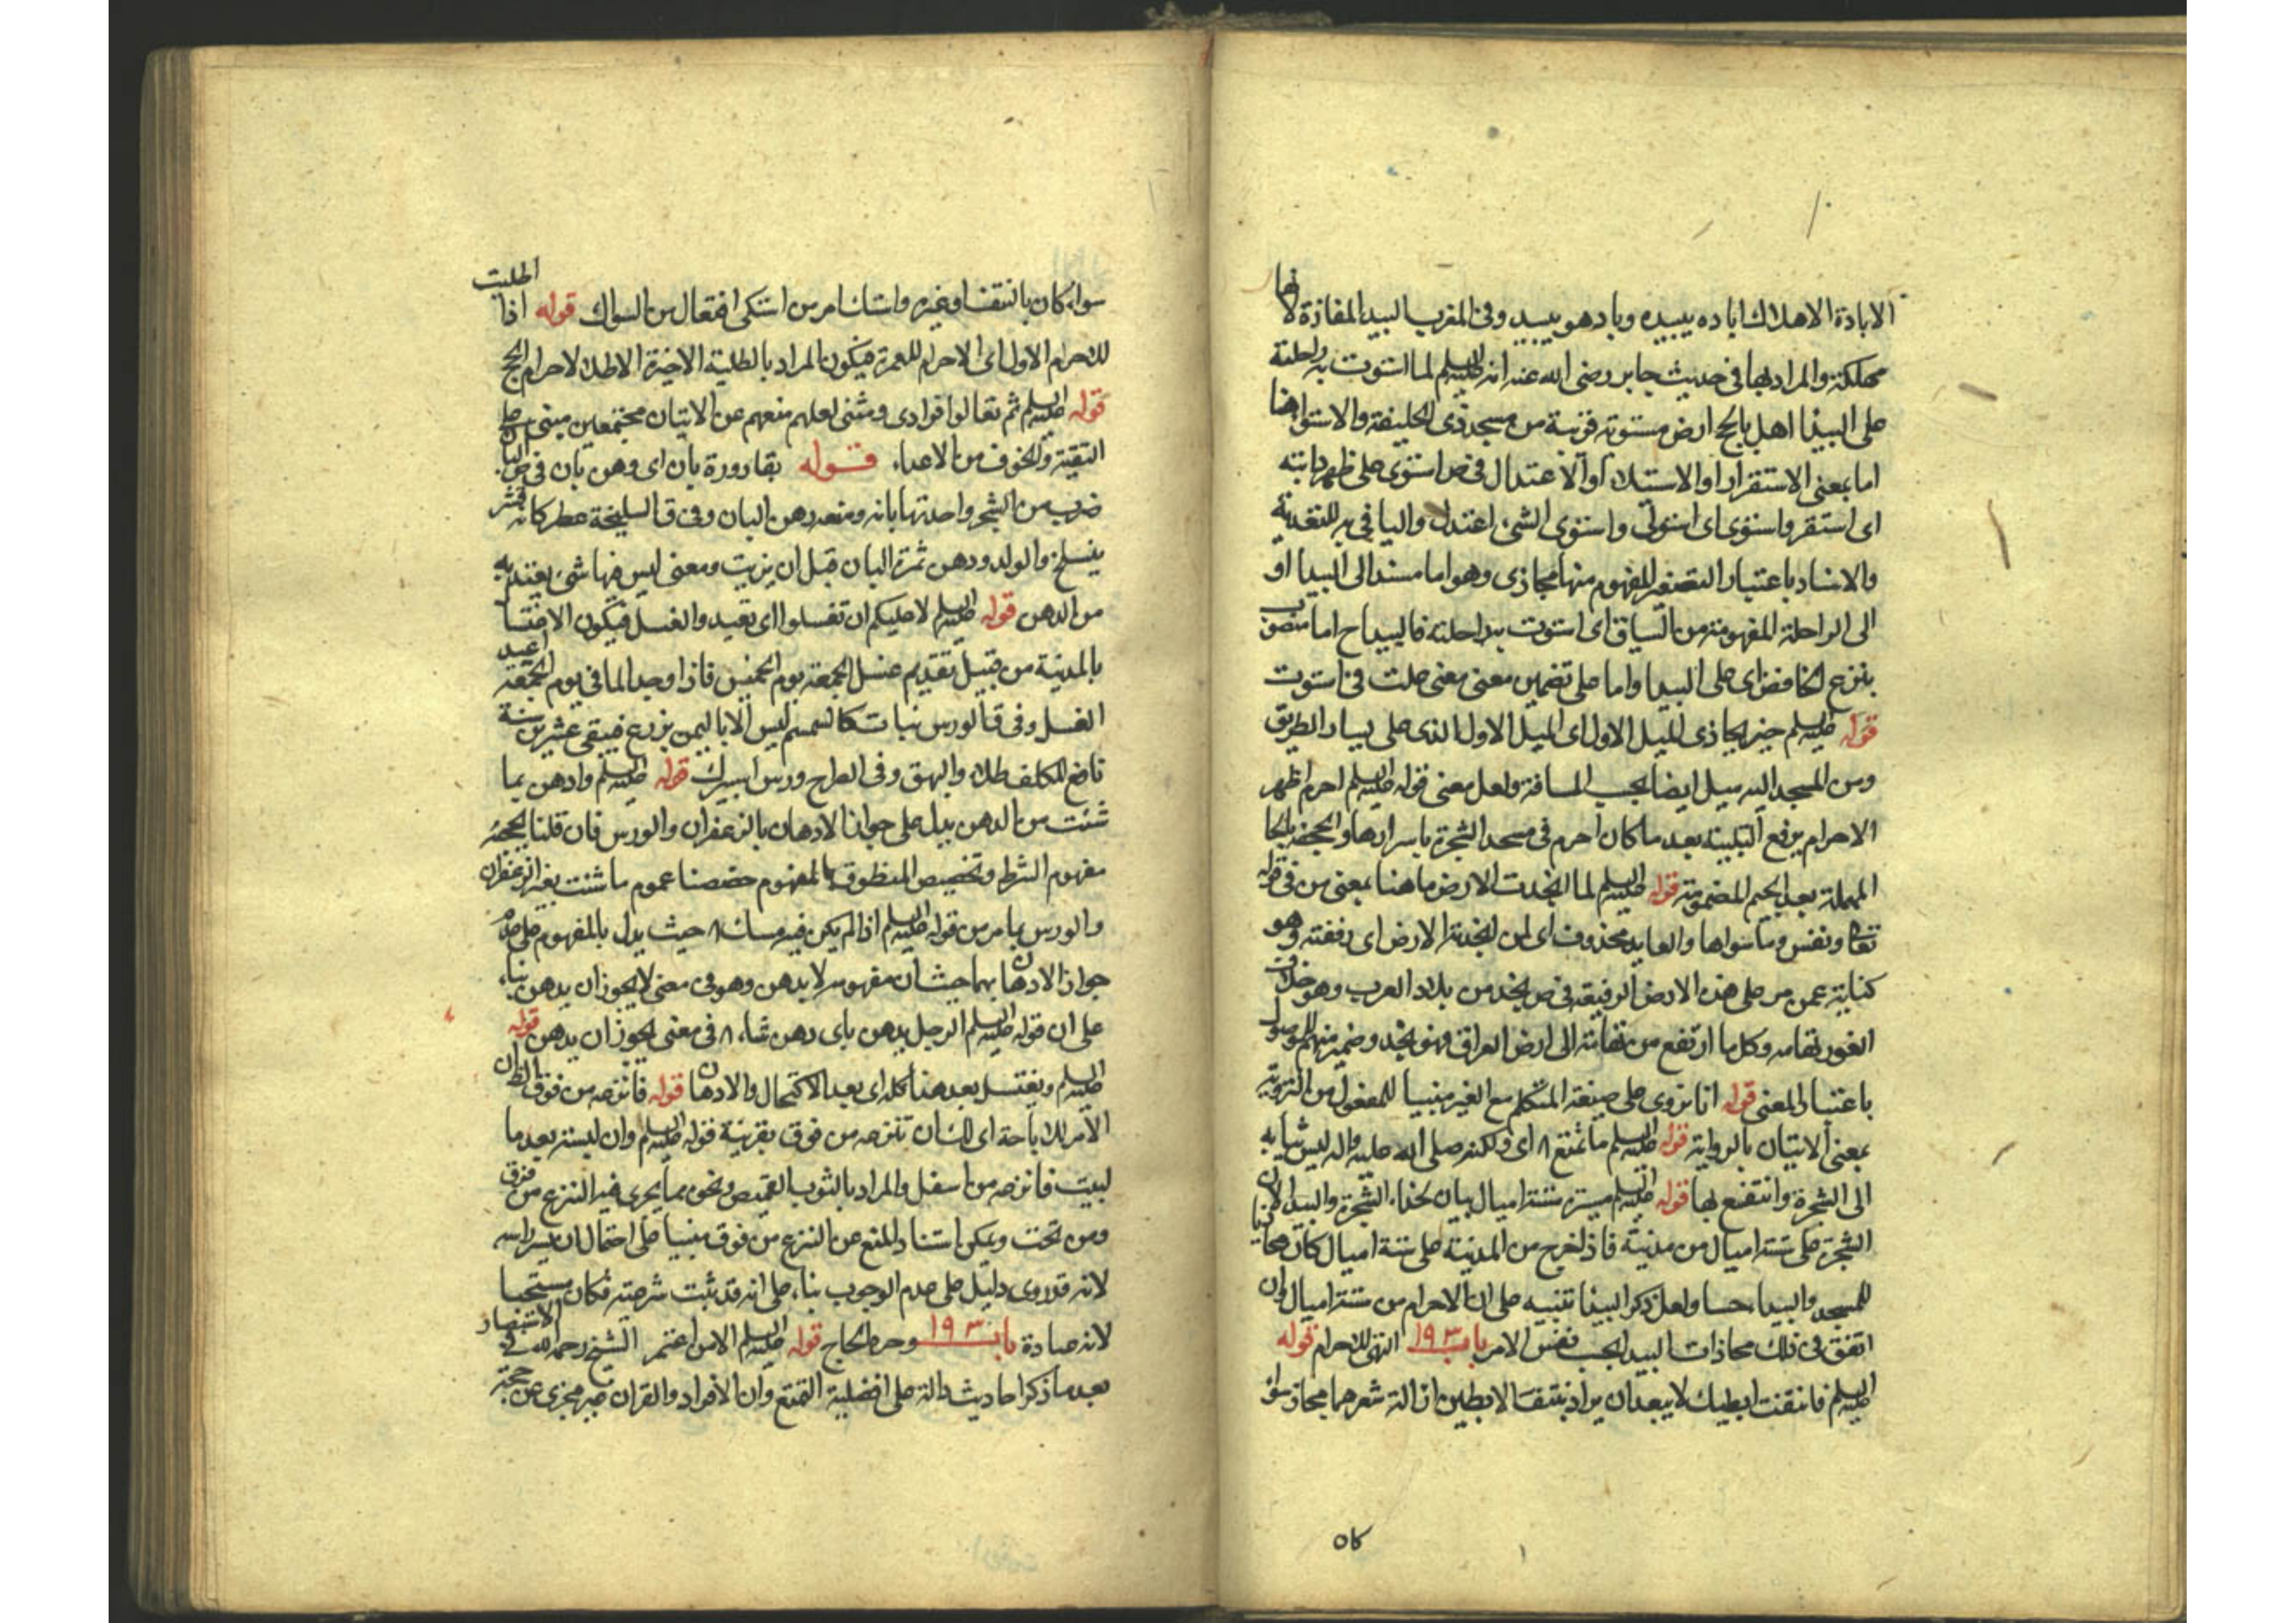 الابادة الاهلاك اباده يبيده وباد هو يبيد وفى المغرب البيدا المفازة لانها
مهلكة والمراد بها فى حديث جابر رضى الله عنه انه عليه السلم لما استوت به راحلته
على البيدا اهل بالحج ارض مستوية قريبة من مسجد ذى الحليفة والاستوا ههنا
اما بمعنى الاستقرار او الاستيلا او الاعتدال فى ص استوى على ظهر دابته
اى استقر واستوى اى استولى واستوى الشئ اعتدل والبا فى به للتعدية
والاسناد باعتبار التصير المفهوم منها مجازى وهو اما مسند الى البيدا او
الى الراحلة المفهومة من السياق اى استوت به راحلته فالبيدا ح اما منصوب
بنزع الخافض اى على البيدا واما على تضمين معنى معنى علت فى استوت
قوله عليه السلم حين يحاذى الميل الاول اى الميل الاول الذى على يسار الطريق
ومن المسجد اليه ميل ايضا بحسب المسافة ولعل معنى قوله عليه السلم احرم اظهر
الاحرام برفع التلبية بعد ما كان احرم فى مسجد الشجرة باسرارها والجحفة بالحا
المهملة بعد الجيم المضمومة قوله عليه السلم لما انجدت الارض ما هنا بمعنى من فى قوله
تعالى ونفس وما سواها والعايد محذوف اى لمن انجدته الارض اى رفعته وهو
كناية عمن مر على هذه الارض الرفيعة فى ص نجد من بلاد العرب وهو خلاف
الغور تهامه وكل ما ارتفع من تهامة الى ارض العراق فهو نجد وضمير منهم للموصول
باعتبار المعنى قوله انا نروى على صيغة المتكلم مع الغير مبنيا للمفعول من التروية
بمعنى الاتيان بالرواية قوله عليه السلم ما تمتع ٨ اى ولكنه صلى الله عليه واله ليس ثيابه
الى الشجرة وانتفع بها قوله عليه السلم مسيرة ستة اميال بيان لحذاء الشجرة والبيدا لان
الشجرة على ستة اميال من مدينة فاذا خرج من المدينة على ستة اميال كان محاذيا
للمسجد والبيدا حسا ولعل ذكر البيدا تنبيه على ان الاحرام من ستة اميال وان
اتفق فى ذلك محاذات البيدا بحسب نفس الامر باب ١٩٣ التهئ للاحرام قوله
عليه السلم فانتفت ابطيك لا يبعد ان يراد بنتف الابطين ازالة شعرهما مجازا سواء
٥٨
سواء كان بالنتف او غيره واستاك امر من استكى افتعال من السواك قوله اذا اطليت
للاحرام الاول اى الاحرام للعمرة فيكون المراد بالطلية الاخيرة الاطلا لاحرام الحج
قوله عليه السلم ثم تعالوا فرادى ومثنى لعلهم منعهم عن الاتيان مجتمعين مبنى على
التقية والخوف من الاعداء قوله بقارورة بان اى دهن بان فى ص البان
ضرب من الشجر واحدتها بانه ومنه دهن البان وفى ق السليخة عطر كانه قشر
ينسلخ والولد ودهن ثمرة البان قبل ان يزيت ومعنى ليس فيها شئ يعتد به
من الدهن قوله عليه السلم لا عليكم ان تغسلوا اى تعيد والغسل فيكون الاغتسا
بالمدينة من قبيل تقديم غسل الجمعة يوم الخميس فاذا وجد الما فى يوم الجمعة اعيد
الغسل وفى ق الورس نبات كالسمسم ليس الا باليمن يزرع فيبقى عشرين سنة
نافع للكلف طلاء والبهق وفى الصراح ورس اسپرك قوله عليه السلم وادهن بما
شئت من الدهن يدل على جواز الادهان بالزعفران والورس فان قلنا بحجية
مفهوم الشرط وتخصيص المنطوق بالمفهوم خصصنا عموم ما شئت بغير الزعفران
والورس بما مر من قوله عليه السلم اذا لم يكن فيه مسك ٨ حيث يدل بالمفهوم على عدم
جواز الادهان بهما حيث ان مفهومه لا يدهن وهو فى معنى لا يجوز ان يدهن بناء
على ان قوله عليه السلم الرجل يدهن باى دهن شاء ٨ فى معنى يجوز ان يدهن قوله
عليه السلم ويغتسل بعد هذا كله اى بعد الاكتحال والادهان قوله فانزعه من فوق الظان
الامر للاباحة اى لك ان تنزعه من فوق بقرينة قوله عليه السلم وان لبسته بعد ما
لبيت فانزعه من اسفل والمراد بالثوب القميص ونحوه مما يجرى فيه النزع من فوق
ومن تحت ويمكن استناد المنع عن النزع من فوق مبنيا على احتمال ان يستر راسه
لانه قد روى دليل على عدم الوجوب بناء على انه قد ثبت شرعيته فكان مستحبا
لانه عبادة باب ١٩٣ وجوه الحاج قوله عليه السلم الا من اعتمر الشيخ رحمه الله فى الاستبصار
بعد ما ذكر احاديث دالة على افضلية التمتع وان الافراد والقران غير مجزى عن حجة